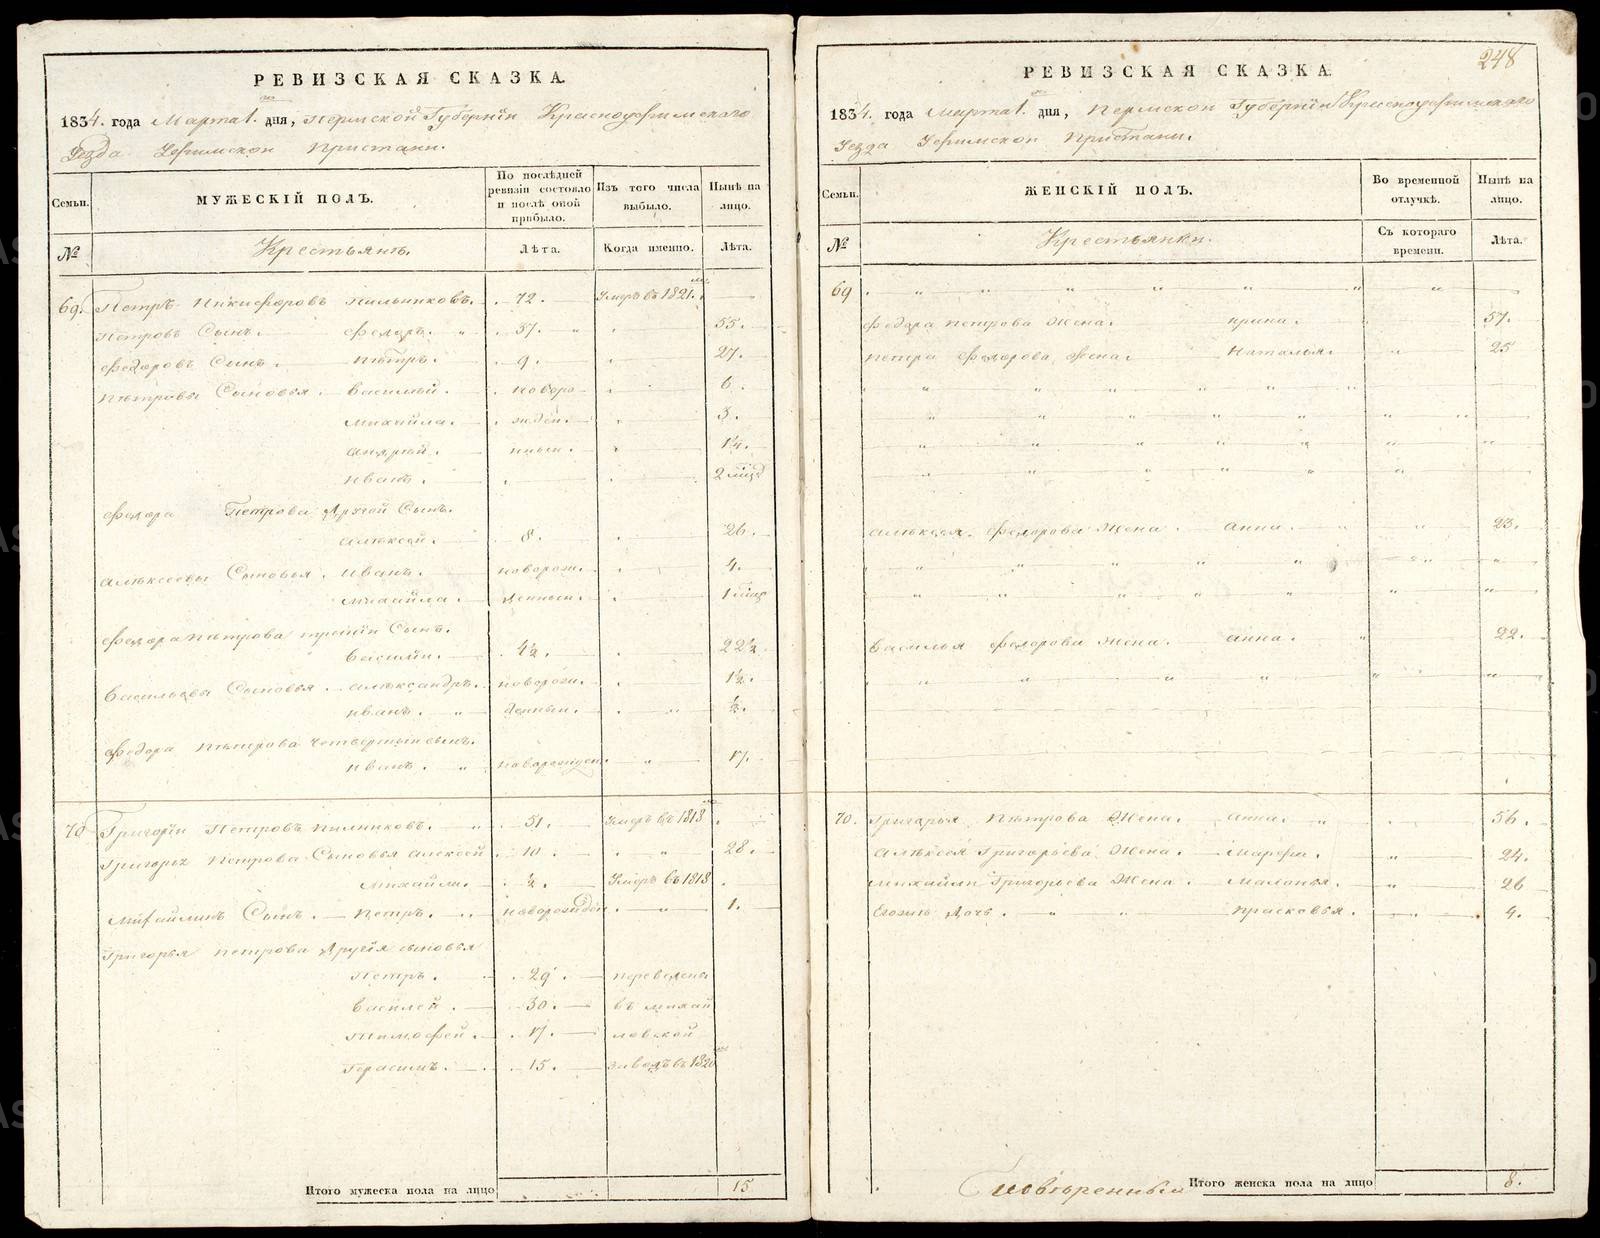 РЕВИЗСКАЯ СКАЗКА.
1834. года Марта 1. дня, Пермской Губернiи Красноуфимскаго
Уезда Уфимской Пристани.
Семьи.
МУЖЕСКIЙ ПОЛЪ.
По послѣдней ревизiи состояло и послѣ оной прибыло.
Изъ того числа выбыло.
Нынѣ на лицо.
№
Крестьянъ.
Лѣта.
Когда именно.
Лѣта.
69. Петръ Никифоровъ Пильниковъ. 72. Умеръ въ 1821.
Петровъ Сынъ. Федоръ. 37. 55.
Федоровъ Сынъ. Пѣтръ. 9. 27.
Пѣтровы Сыновья. Василий. новоро 6.
Михайла. жден. 3.
Андрей. нныи. 1¼.
Иванъ. 2 мцд
Федора Петрова Другой Сынъ.
Алѣксей. 8. 26.
Алѣксеевы Сыновья. Иванъ. новорож. 4.
Михайла. денныи. 1 мцд
Федора Пѣтрова третiи Сынъ.
Василiи. 4½. 22½.
Васильевы Сыновья. Алѣксандръ. новорож. 1½.
Иванъ. денныи. ½.
Федора Пѣтрова четвертыи сынъ.
Иванъ. новорожден. 17.
70 Григорiи Петровъ Пилниковъ. 51. Умеръ въ 1818
Григорья Петрова Сыновья Алексей 10. 28.
Михайли. ½. Умеръ въ 1818
Михайлинъ Сынъ. Петръ. новорожден. 1.
Григорья Петрова Другiя сыновья
Петръ. 29. переведены
Василей. 30. въ михай
Тимофей. 17. ловской
Герасимъ. 15. заводъ въ 1820
Итого мужеска пола на лицо 15
248
РЕВИЗСКАЯ СКАЗКА.
1834. года Марта 1. дня, Пермской Губернiи Красноуфимскаго
Уезда Уфимской Пристани.
Семьи.
ЖЕНСКIЙ ПОЛЪ.
Во временной отлучкѣ.
Нынѣ на лицо.
№
Крестьянки.
Съ котораго времени.
Лѣта.
69
Федора Петрова Жена. Ирина. 57.
Петра Федорова Жена. Наталья. 25
Алѣксея Федорова Жена. Анна. 23.
Василья Федорова Жена. Анна. 22.
70. Григорья Пѣтрова Жена. Анна. 56.
Алѣксея Григорьева Жена. Марфа. 24.
Михайли Григорьева Жена. Маланья. 26
Егозинъ Дочь. Прасковья. 4.
Итого женска пола на лицо 8.